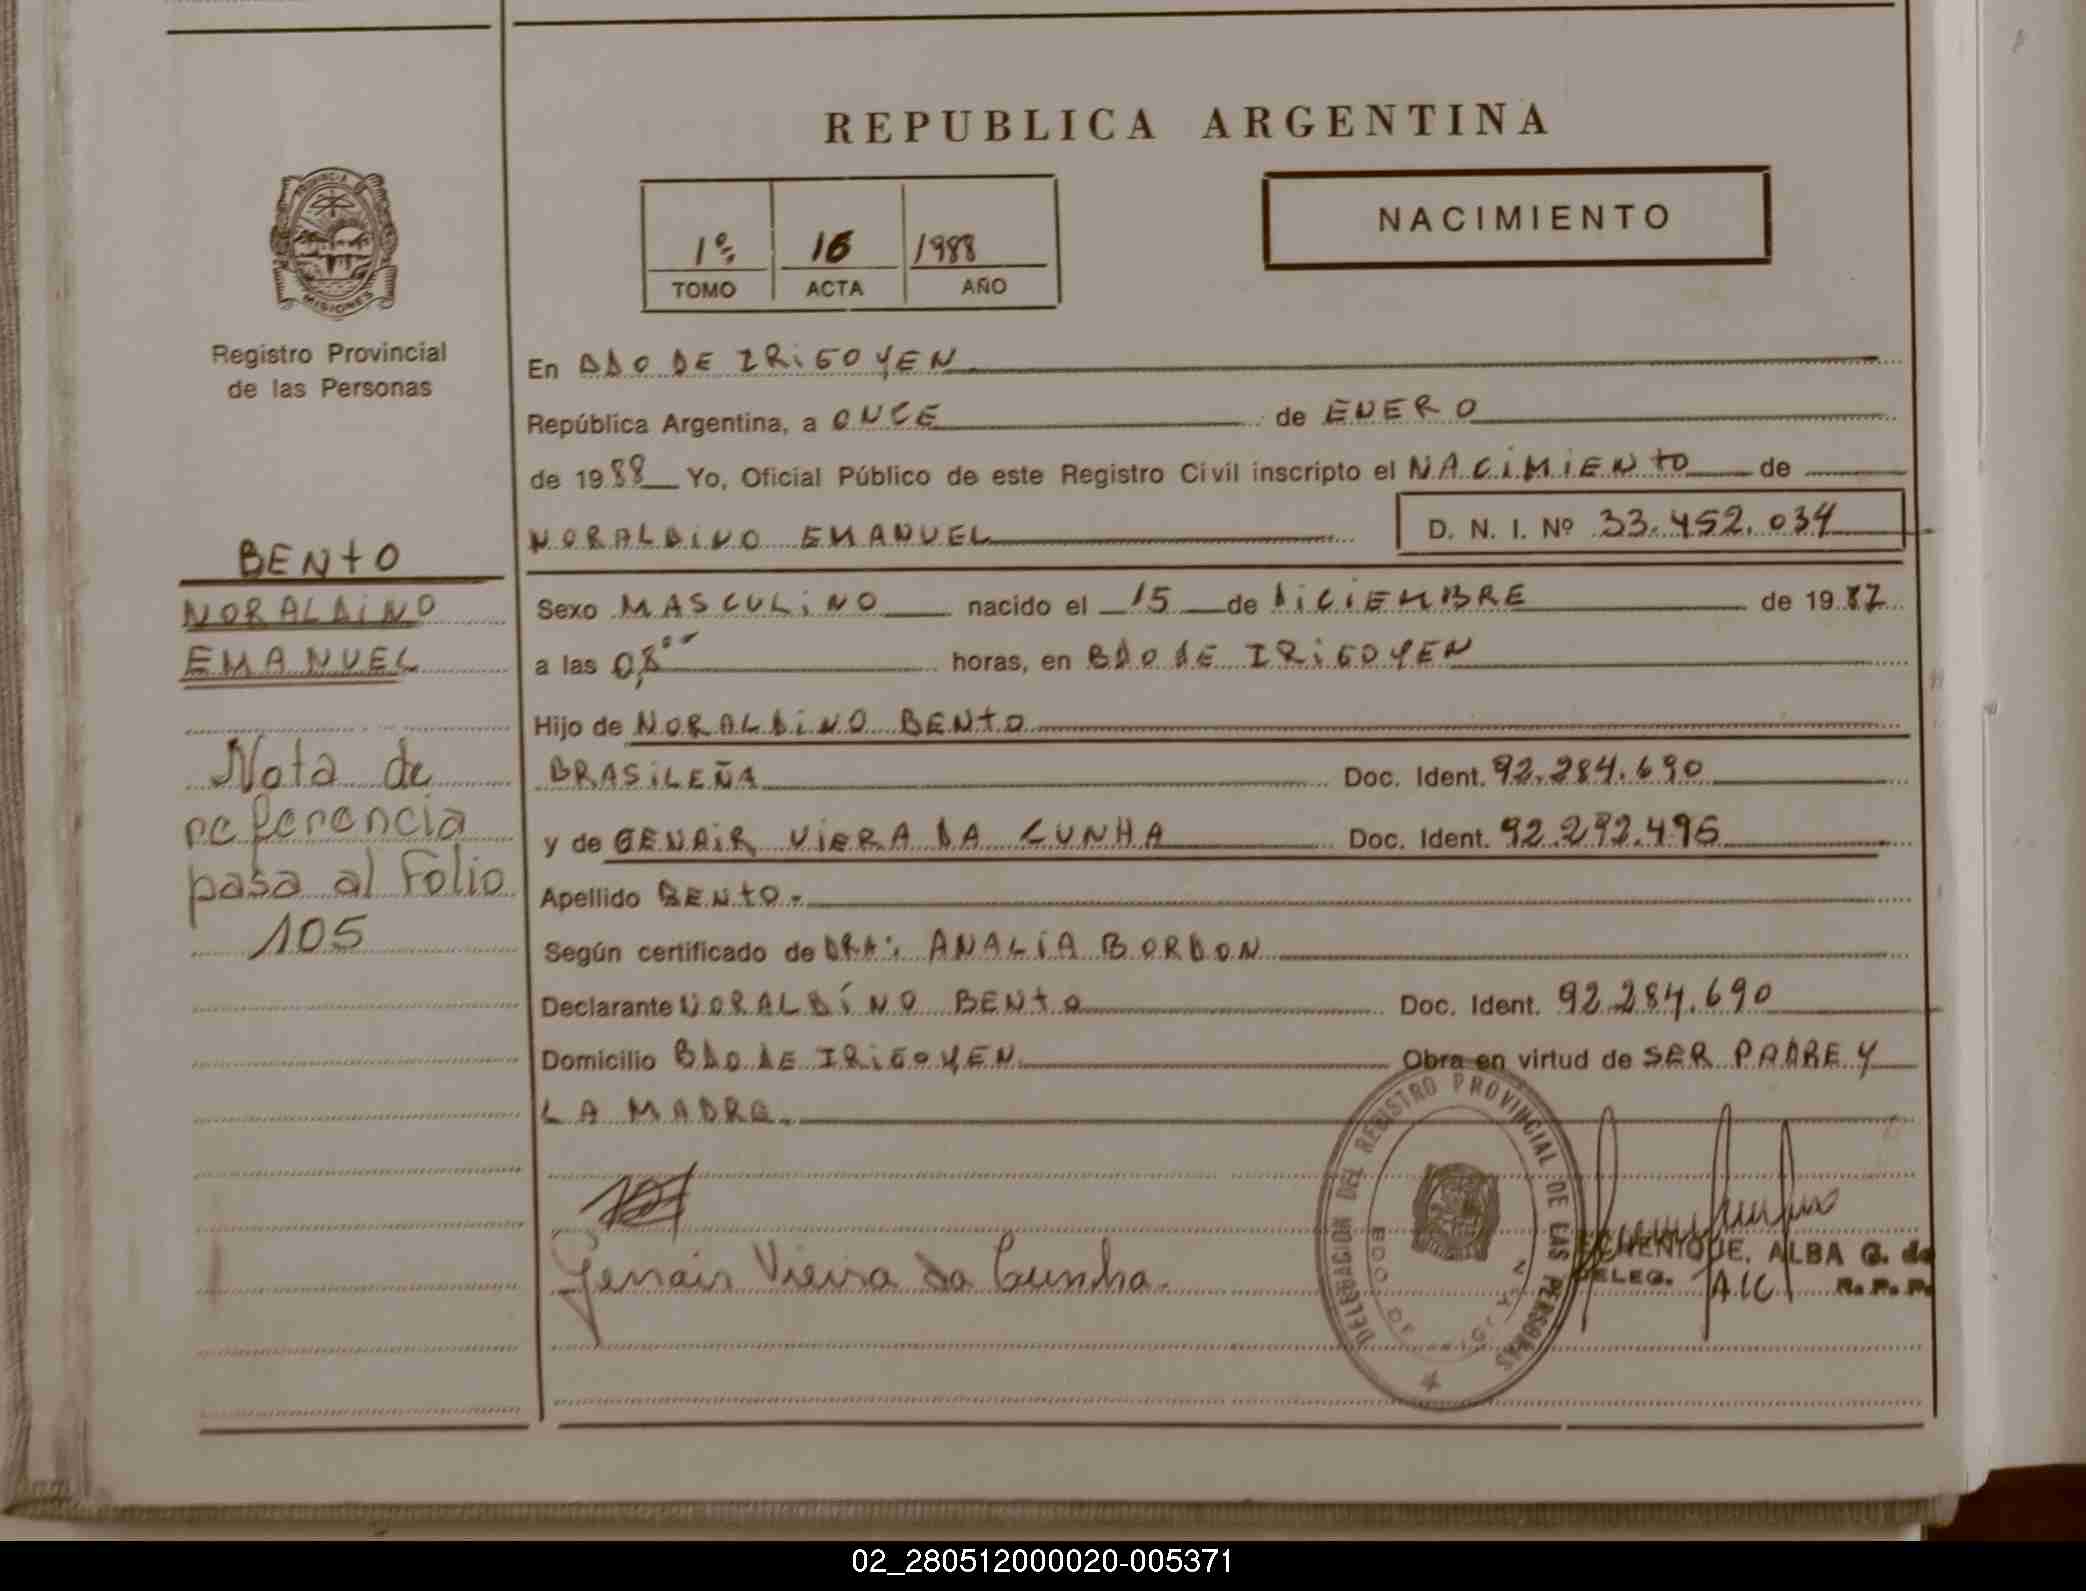 REPUBLICA ARGENTINA
NACIMIENTO
1º 16 1988
TOMO ACTA AÑO
PROVINCIA
MISIONES
Registro Provincial
de las Personas
BENTO
NORALDINO
EMANUEL
Nota de
referencia
pasa al Folio
105
En BDO DE IRIGOYEN
República Argentina, a ONCE de ENERO
de 1988 Yo, Oficial Público de este Registro Civil inscripto el NACIMIENTO de
NORALDINO EMANUEL D. N. I. Nº 33.452.034
Sexo MASCULINO nacido el 15 de DICIEMBRE de 1987
a las 08,00 horas, en BDO DE IRIGOYEN
Hijo de NORALDINO BENTO
BRASILEÑA Doc. Ident. 92.284.690
y de GENAIR VIERA DA CUNHA Doc. Ident. 92.292.496
Apellido BENTO.-
Según certificado de DRA: ANALIA BORDON
Declarante NORALDINO BENTO Doc. Ident. 92.284.690
Domicilio BDO DE IRIGOYEN Obra en virtud de SER PADRE Y
LA MADRE.
Genair Vieira da Cunha.
DELEGACION DEL REGISTRO PROVINCIAL DE LAS PERSONAS
BDO DE
ECHENIQUE, ALBA G. de
DELEG. A/C R. P. P.
02_280512000020-005371